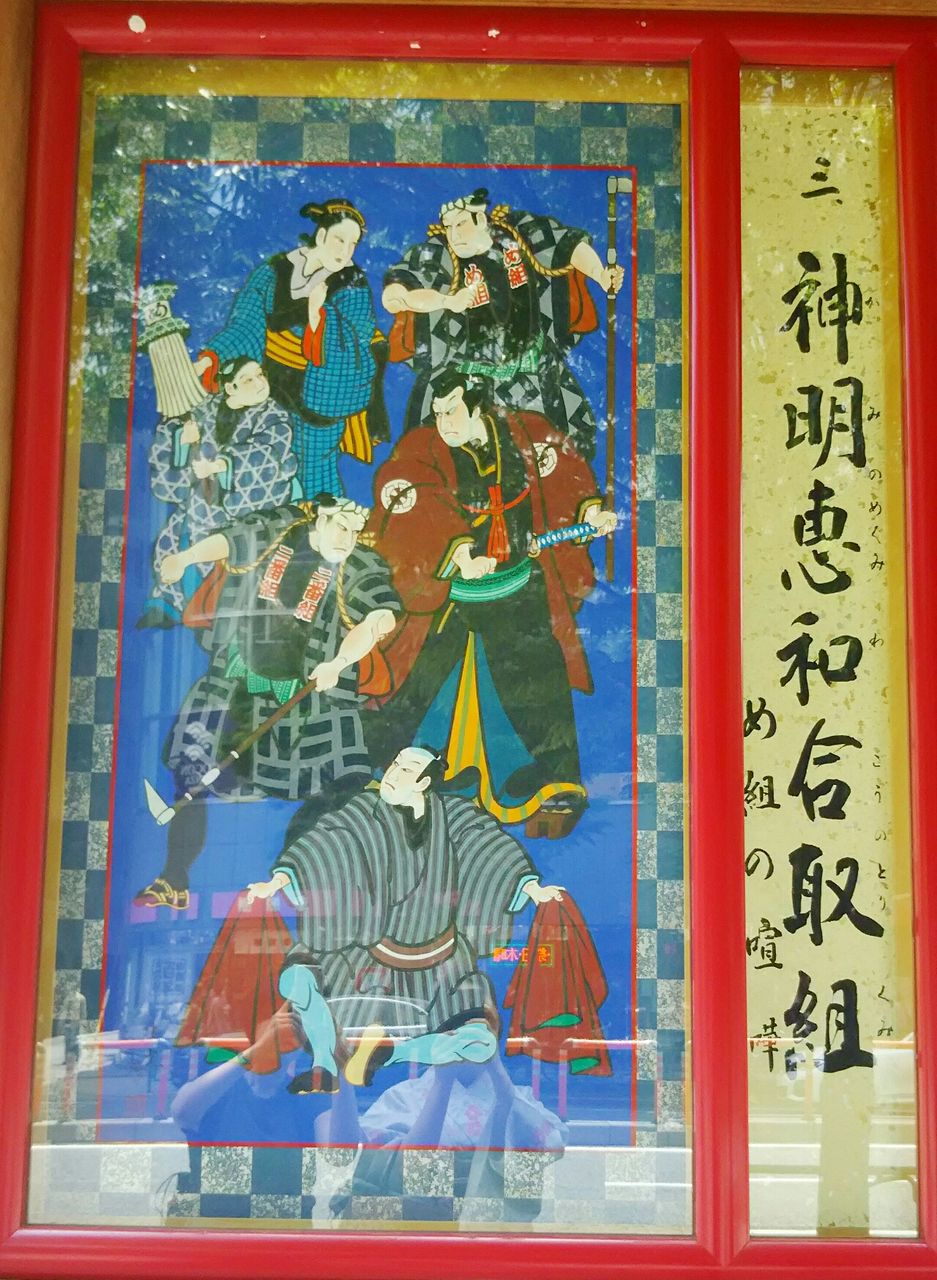 三、神明恵和合取組
かみのめぐみわごうのとりくみ
め組の喧嘩
め組
め組
め
二番組
二番組